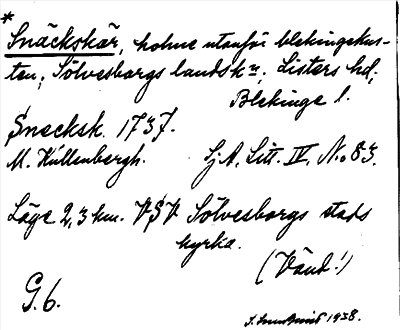 *
Snäckskär, holme utanför blekingekus-
ten, Sölvesborgs landskn, Listers hd,
Blekinge l.
Snecksk. 1737.
M. Kullenbergh. Sj. A. Litt. IV. No 83.
Läge 2,3 km. VSV Sölvesborgs stads
kyrka.
(Vänd!)
G. 6.
1938.